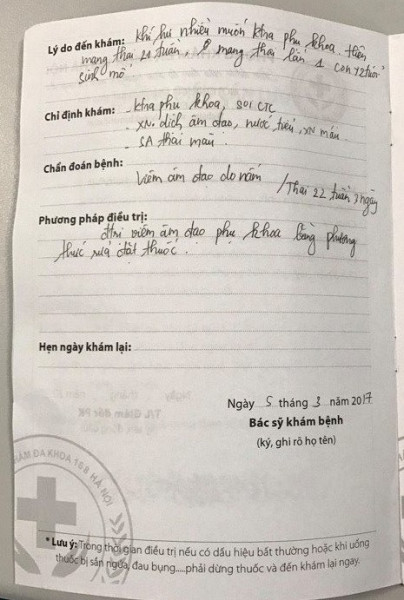 Lý do đến khám: khí hư nhiều muốn ktra phụ khoa. tiền
mang thai 22 tuần, mang thai lần 1 con 12 tuổi
sinh mổ
Chỉ định khám: - ktra phụ khoa, soi CTC
- XN dịch âm đạo, nước tiểu, XN máu
- SA thai màu
Chẩn đoán bệnh:
Viêm âm đạo do nấm / Thai 22 tuần 3 ngày
Phương pháp điều trị:
đtrị viêm âm đạo phụ khoa bằng phương
thức rửa đặt thuốc.
Hẹn ngày khám lại:
Ngày 5 tháng 3 năm 2017
Bác sỹ khám bệnh
(ký, ghi rõ họ tên)
ĐA KHOA 168 HÀ NỘI
* Lưu ý: Trong thời gian điều trị nếu có dấu hiệu bất thường hoặc khi uống
thuốc bị sẩn ngứa, đau bụng.....phải dừng thuốc và đến khám lại ngay.